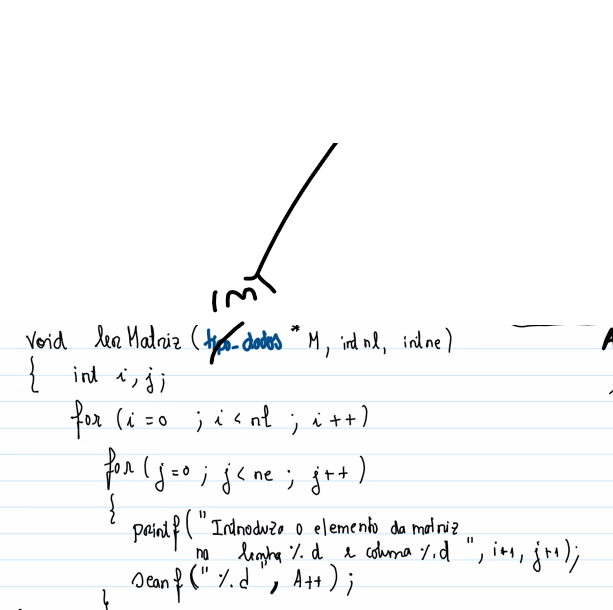 int
void lerMatriz (tipo_dados * M, int nl, int nc)
{ int i, j;
for (i=0 ; i < nl ; i++)
for (j=0 ; j < nc ; j++)
{
printf("Introduza o elemento da matriz
na linha %d e coluna %d ", i+1, j+1);
scanf("%d", A++);
}